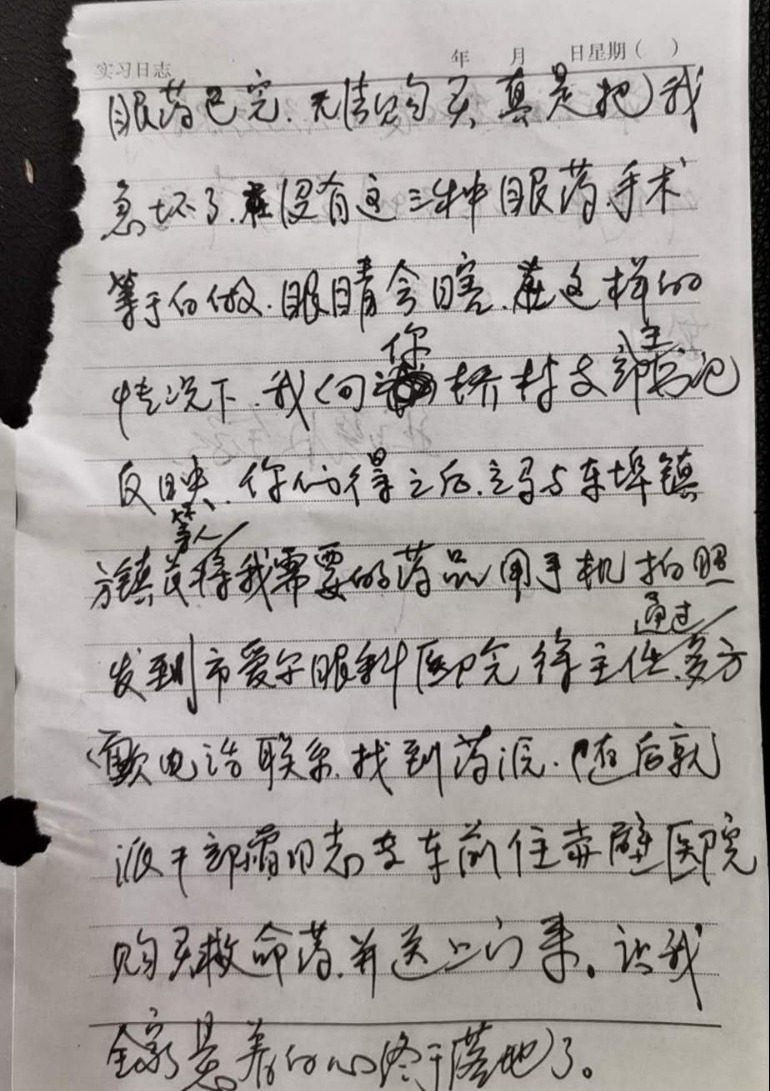 实习日志 年 月 日星期( )
眼药已完.无法购买,真是把我
急坏了.没有这三种眼药,手术
等于白做.眼睛会瞎.在这样的
你 主
情况下.我向桥村支部书记
反映.你们得之后.立马与车埠镇
等人
方镇长将我需要的药品用手机拍照
通过
发到市爱尔眼科医院徐主任.多方
电话联系.找到药源.随后就
派干部同志专车前往赤壁医院
购买救命药.并送上门来。让我
全家悬着的心终于落地了。